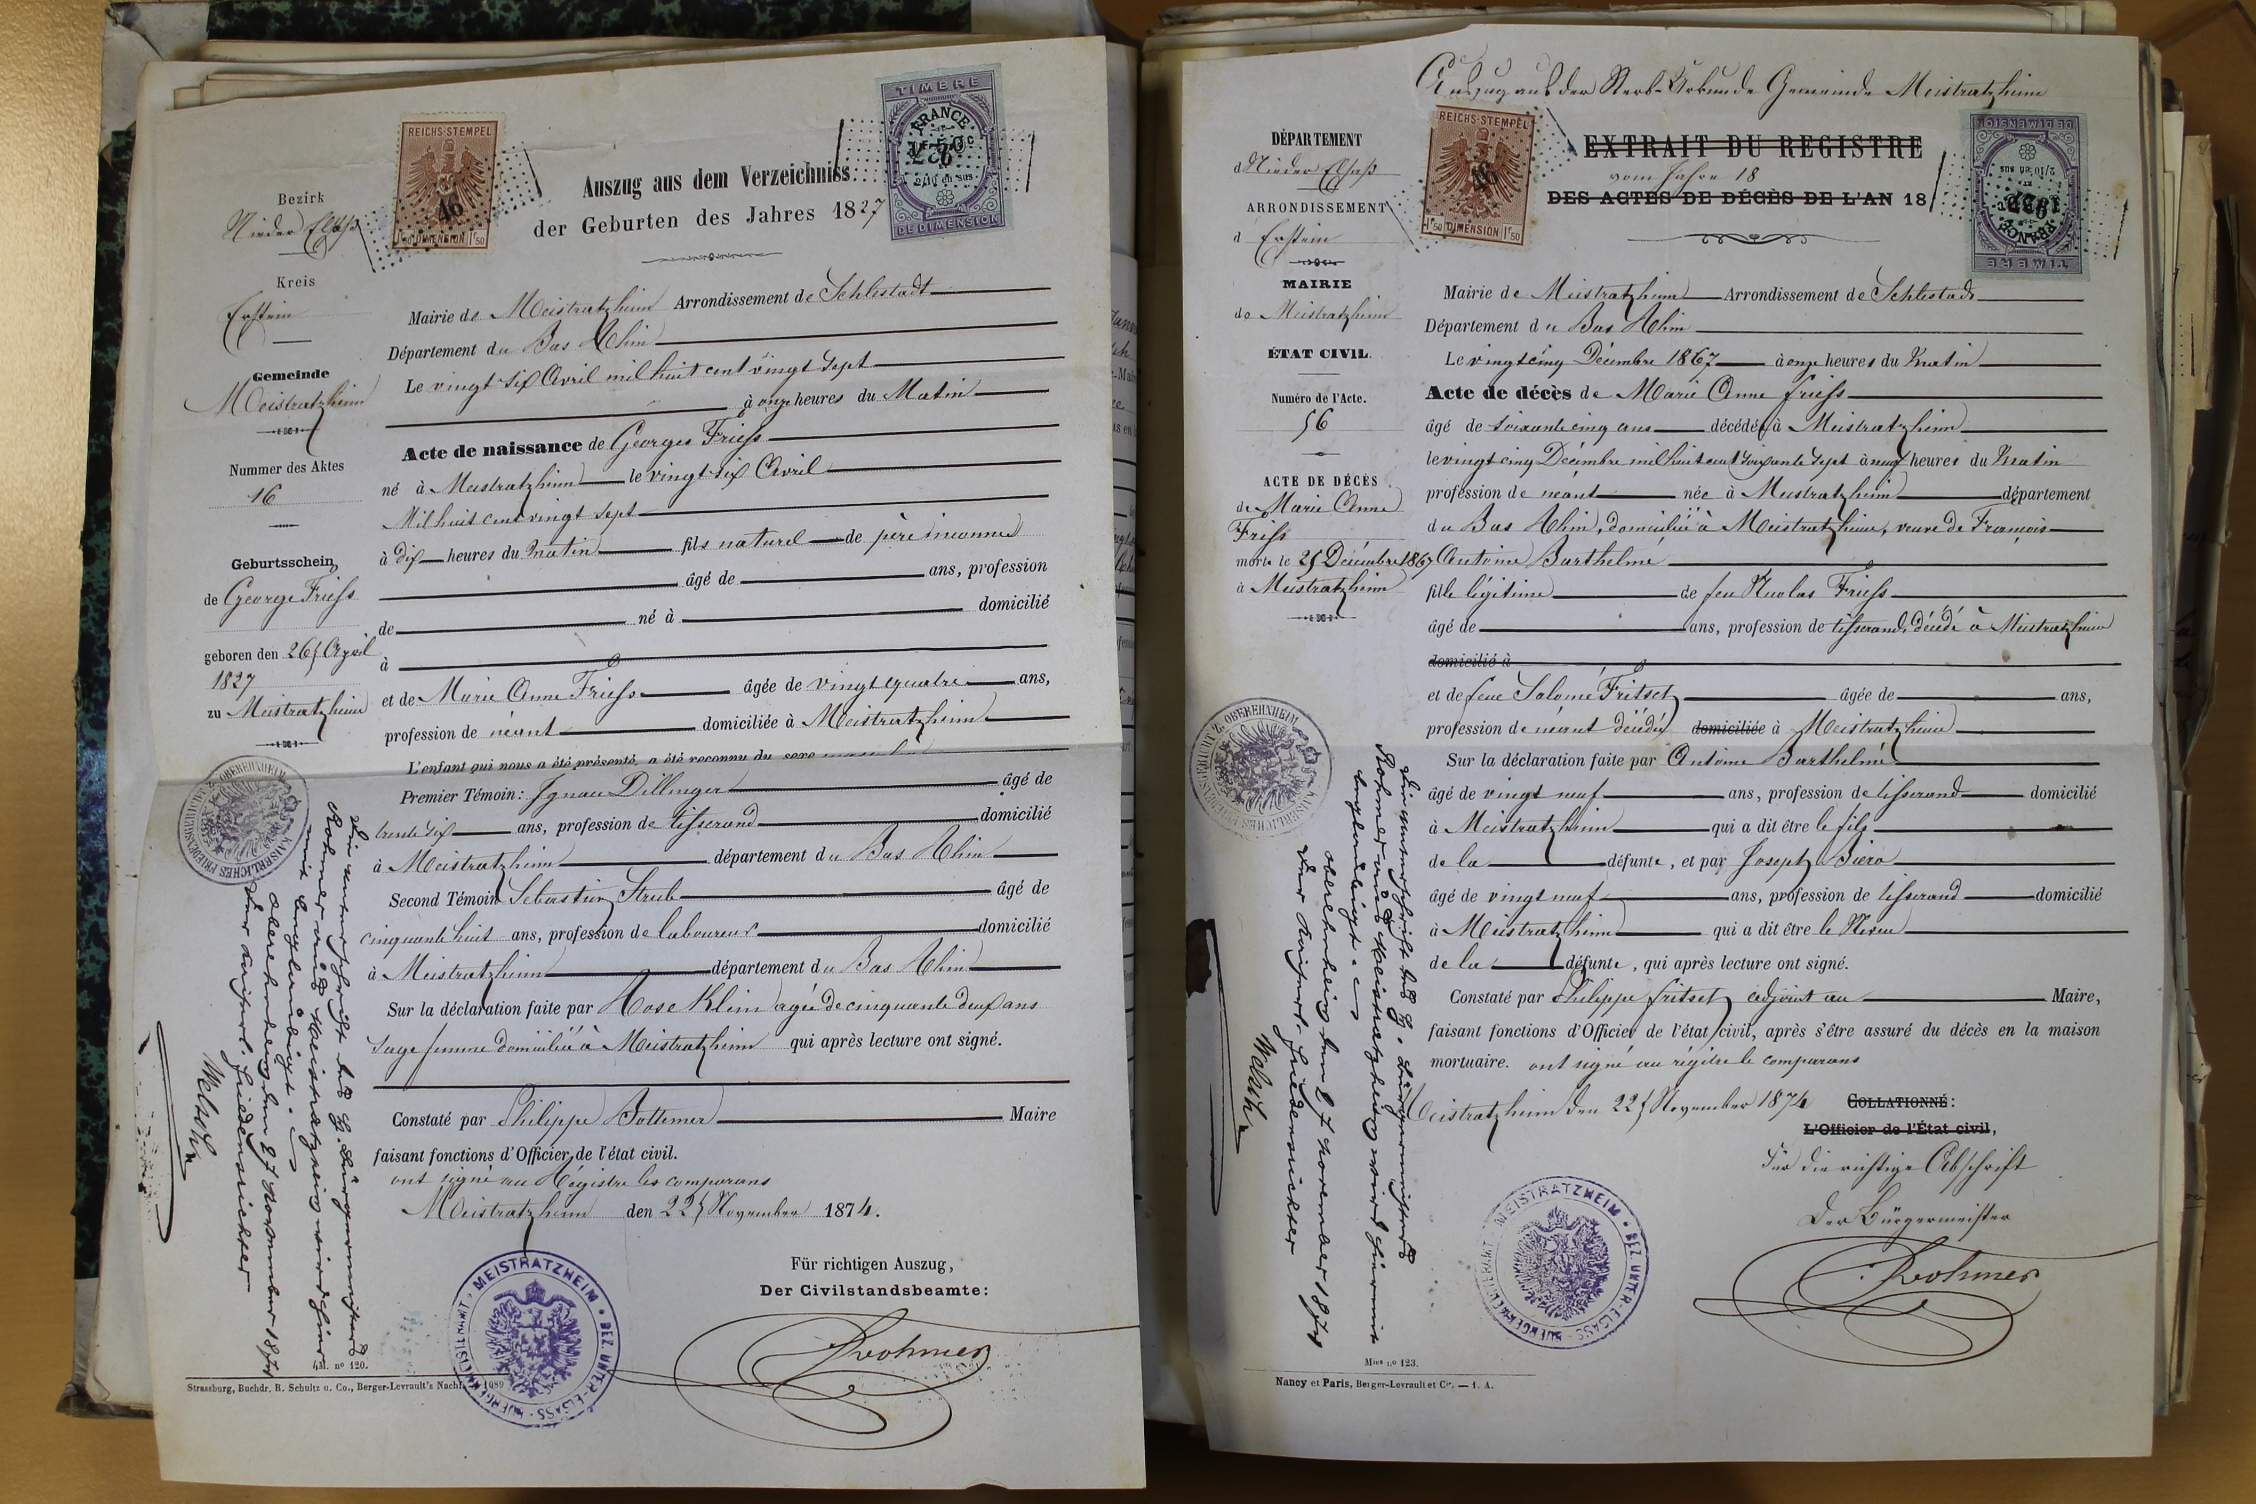 REICHS-STEMPEL
46
1F50 DIMENSION 1F50
TIMBRE
FRANCE
2/10 en sus
DE DIMENSION
Auszug aus dem Verzeichniss
der Geburten des Jahres 1827
Bezirk
Nieder Elsaß
Kreis
Erstein
Gemeinde
Meistratzheim
Nummer des Aktes
16
Geburtsschein
de George Frieß
geboren den 26t April
1827
zu Meistratzheim
Mairie de Meistratzheim Arrondissement de Schlestadt
Département du Bas Rhin
Le vingt six Avril mil huit cent vingt sept
à onze heures du Matin
Acte de naissance de Georges Frieß
né à Meistratzheim le vingt-six Avril
Mil huit cent vingt sept
à dix heures du matin fils naturel de père inconnu
âgé de ans, profession
de né à domicilié
à
et de Marie Anne Frieß âgée de vingt quatre ans,
profession de néant domiciliée à Meistratzheim
L'enfant qui nous a été présenté, a été reconnu du sexe masculin
Premier Témoin: Ignace Dillinger âgé de
trente six ans, profession de tisserand domicilié
à Meistratzheim département du Bas Rhin
Second Témoin Sebastien Straub âgé de
cinquante huit ans, profession de laboureur domicilié
à Meistratzheim département du Bas Rhin
Sur la déclaration faite par Rose Klein agée de cinquante deux ans
sage femme domiciliée à Meistratzheim qui après lecture ont signé.
Constaté par Philippe Bottemer Maire
faisant fonctions d'Officier de l'état civil.
ont signé au Régistre les comparans
Meistratzheim den 22t November 1874.
Für richtigen Auszug,
Der Civilstandsbeamte:
Rohmer
MEISTRATZHEIM • BEZ. UNTER-ELSASS • BUERGERMEISTERAMT
KAISERLICHES FRIEDENSGERICHT Z. OBEREHNHEIM
Die Unterschrift des H. Bürgermeisters
Rohmer aus Meistratzheim wird hier
mit beglaubigt.
Oberehnheim den 27 November 1874
Der Kaiserl. Friedensrichter
Welsch
M. no 120.
Strassburg, Buchdr. R. Schultz u. Co., Berger-Levrault's Nachf. 1089
Auszug aus der Sterb-Urkunde Gemeinde Meistratzheim
REICHS-STEMPEL
46
1F50 DIMENSION 1F50
EXTRAIT DU REGISTRE
vom Jahre 18
DES ACTES DE DÉCÈS DE L'AN 18
TIMBRE
FRANCE
2/10 en sus
DE DIMENSION
DÉPARTEMENT
d Nieder Elsaß
ARRONDISSEMENT
d Erstein
MAIRIE
de Meistratzheim
ÉTAT CIVIL.
Numéro de l'Acte.
56
ACTE DE DÉCÈS
de Marie Anne
Frieß
morte le 25 Décembre 1867
à Meistratzheim
Mairie de Meistratzheim Arrondissement de Schlestadt
Département du Bas Rhin
Le vingt cinq Décembre 1867 à onze heures du Matin
Acte de décès de Marie Anne Frieß
âgé de soixante cinq ans décédée à Meistratzheim
le vingt cinq Décembre mil huit cent soixante sept à neuf heures du Matin
profession de néant née à Meistratzheim département
du Bas Rhin, domiciliée à Meistratzheim, veuve de François
Antoine Barthelmé
fille légitime de feu Nicolas Frieß
âgé de ans, profession de tisserand, décédé à Meistratzheim
domicilié à
et de feue Salomé Fritsch âgée de ans,
profession de néant décédée domiciliée à Meistratzheim
Sur la déclaration faite par Antoine Barthelmé
âgé de vingt neuf ans, profession de tisserand domicilié
à Meistratzheim qui a dit être le fils
de la défunte, et par Joseph Biero
âgé de vingt neuf ans, profession de tisserand domicilié
à Meistratzheim qui a dit être le Neveu
de la défunte, qui après lecture ont signé.
Constaté par Philippe Fritsch adjoint au Maire,
faisant fonctions d'Officier de l'état civil, après s'être assuré du décès en la maison
mortuaire. ont signé au régistre le comparans
Meistratzheim den 22t November 1874
COLLATIONNÉ:
L'Officier de l'État civil,
Für die richtige Abschrift
Der Bürgermeister
Rohmer
MEISTRATZHEIM • BEZ. UNTER-ELSASS • BUERGERMEISTERAMT
KAISERLICHES FRIEDENSGERICHT Z. OBEREHNHEIM
Die Unterschrift des H. Bürgermeisters
Rohmer aus Meistratzheim wird hiermit
beglaubigt.
Oberehnheim den 27 November 1874
Der Kaiserl. Friedensrichter
Welsch
Mies no 123.
Nancy et Paris, Berger-Levrault et Cie. — 1. A.